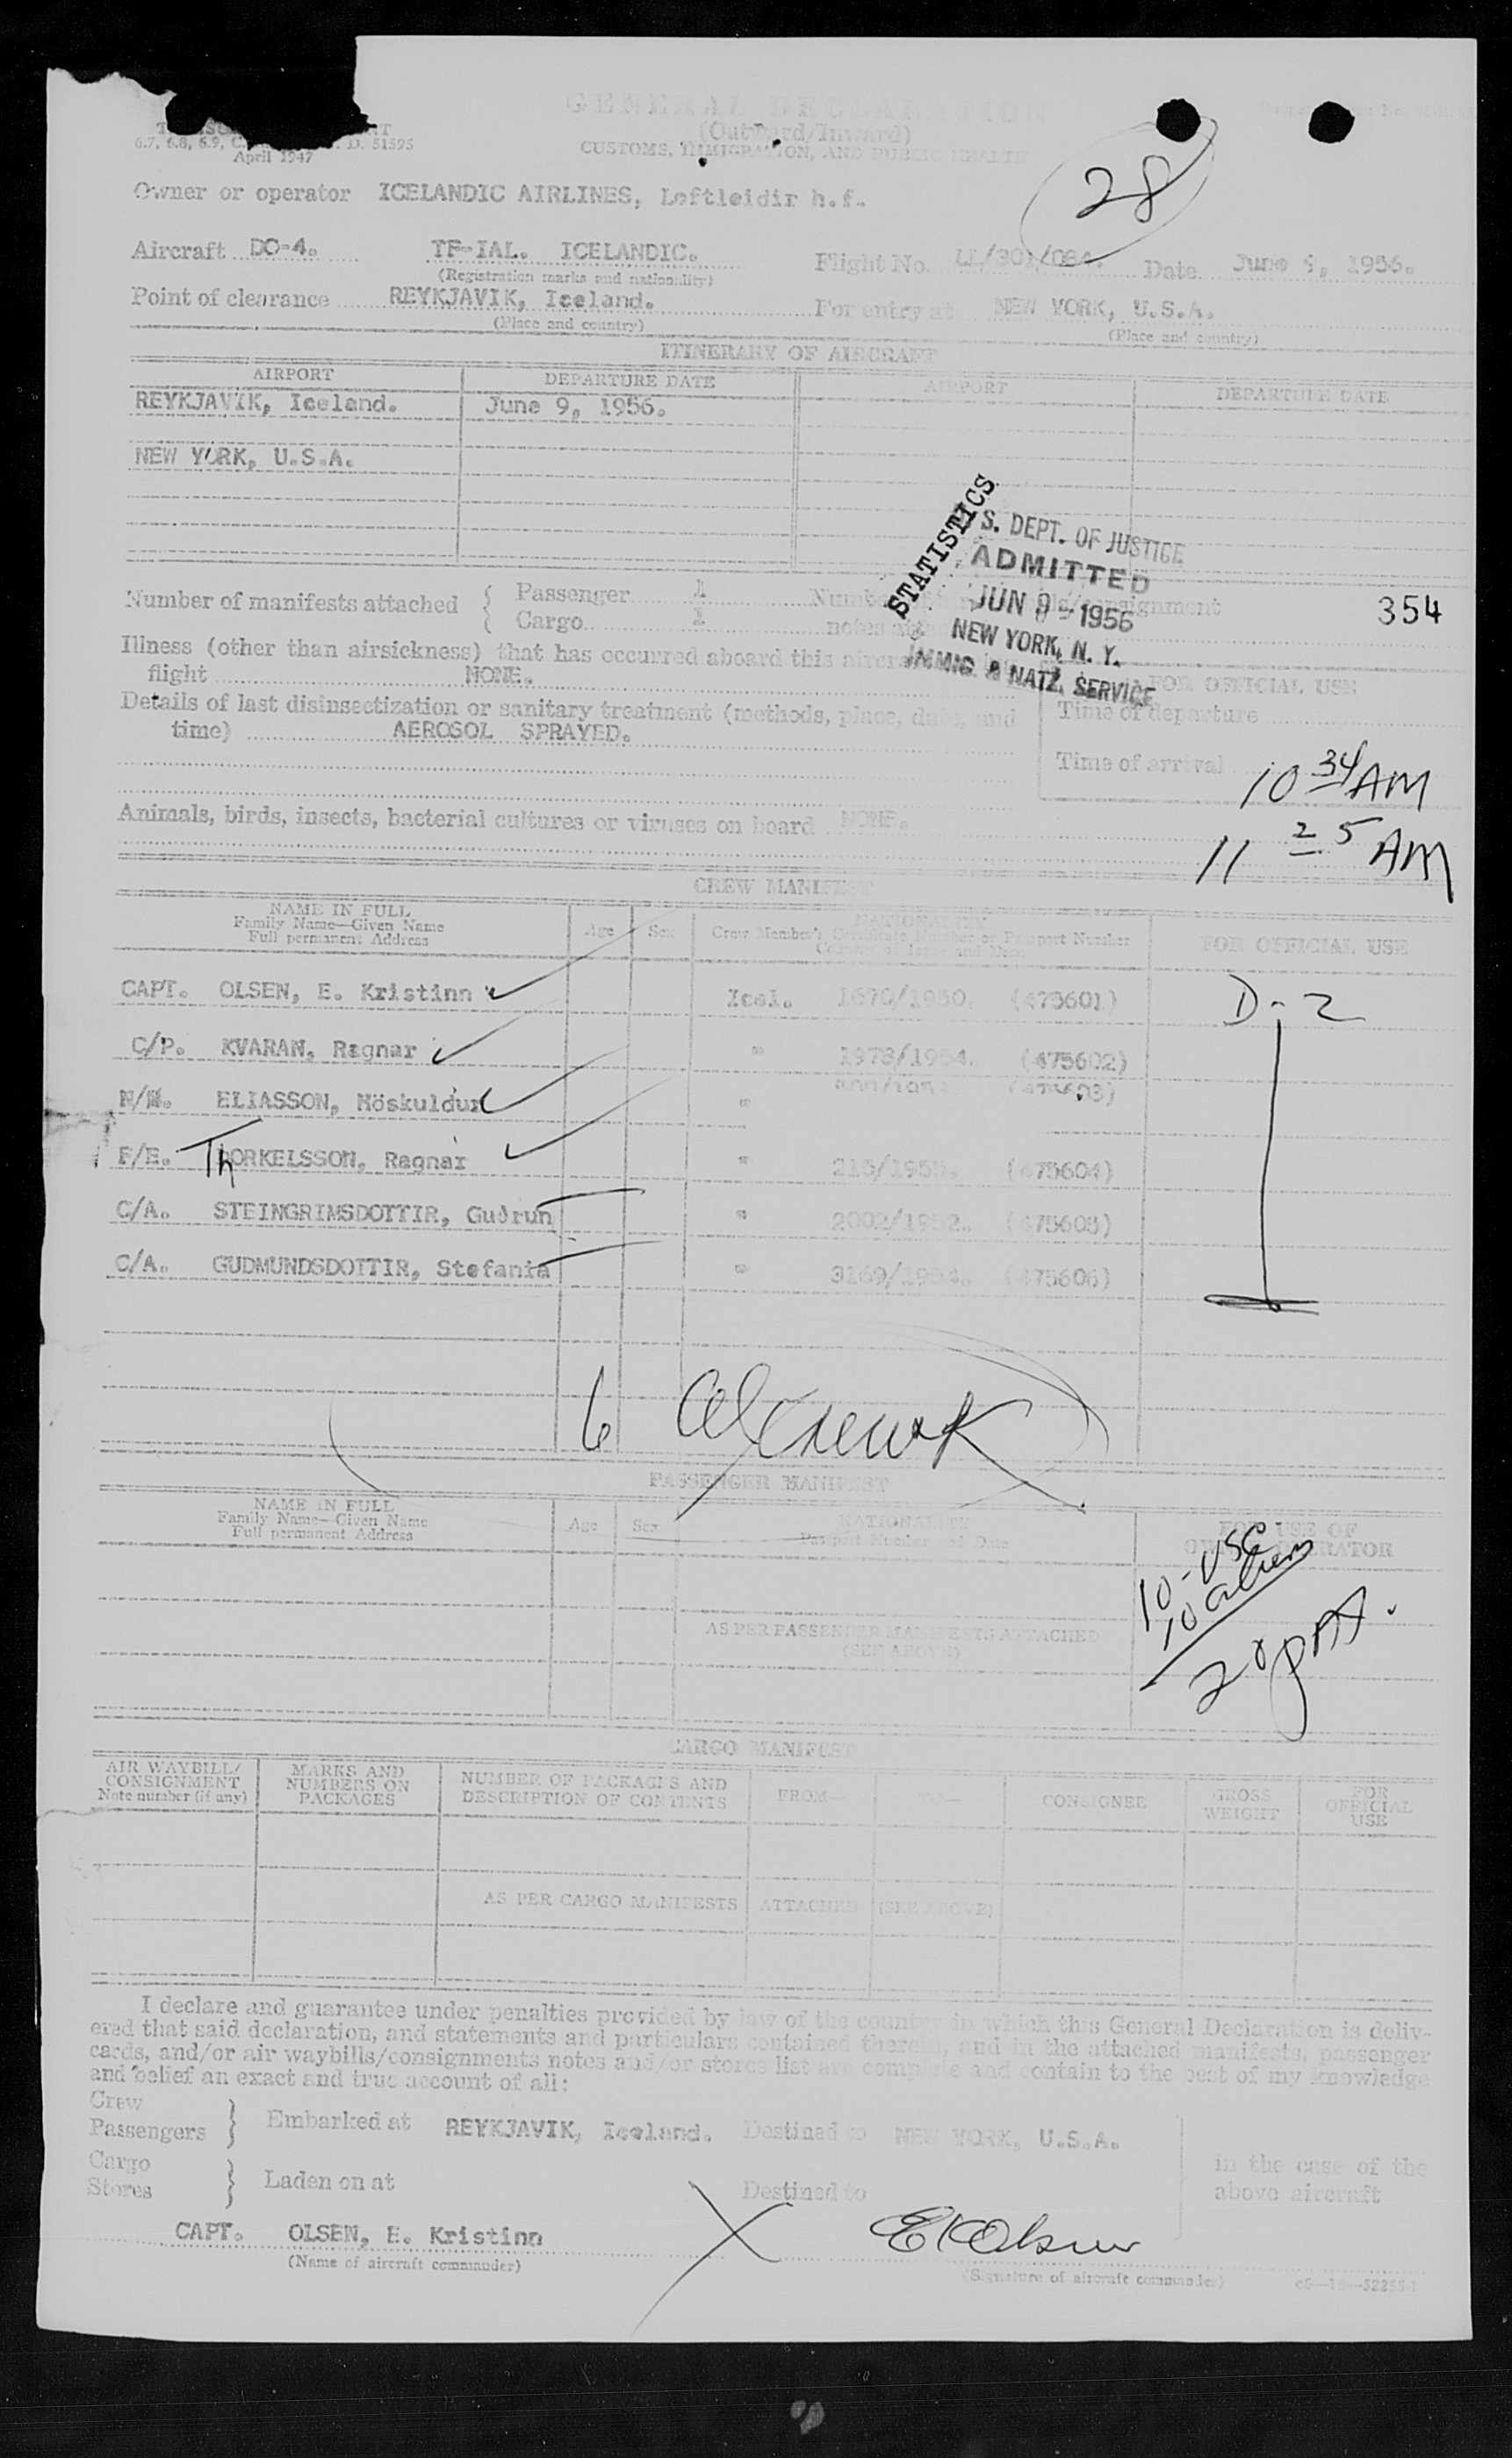 GENERAL DECLARATION
(Outward/Inward)
CUSTOMS, IMMIGRATION, AND PUBLIC HEALTH
6.7, 6.8, 6.9, C. D. 51595
April 1947
28
Owner or operator ICELANDIC AIRLINES, Loftleidir h.f.
Aircraft DC-4. TF-IAL. ICELANDIC. Flight No. Date June 9, 1956.
(Registration marks and nationality)
Point of clearance REYKJAVIK, Iceland. For entry at NEW YORK, U.S.A.
(Place and country) (Place and country)
ITINERARY OF AIRCRAFT
AIRPORT DEPARTURE DATE AIRPORT DEPARTURE DATE
REYKJAVIK, Iceland. June 9, 1956.
NEW YORK, U.S.A.
STATISTICS
U.S. DEPT. OF JUSTICE
ADMITTED
JUN 9 - 1956
NEW YORK, N. Y.
IMMIG. & NATZ. SERVICE
Number of manifests attached { Passenger 1
Cargo 1
354
Illness (other than airsickness) that has occurred aboard this
flight NONE.
FOR OFFICIAL USE
Details of last disinsectization or sanitary treatment (methods, place, date and
time) AEROSOL SPRAYED.
Time of departure
Time of arrival 10 34 AM
Animals, birds, insects, bacterial cultures or viruses on board NONE.
11 25 AM
CREW MANIFEST
NAME IN FULL
Family Name—Given Name
Full permanent Address
Age Sex NATIONALITY
Crew Member's Certificate Number or Passport Number
FOR OFFICIAL USE
CAPT. OLSEN, E. Kristinn Icel. 1670/1950. (475601) D-2
C/P. KVARAN, Ragnar " 1973/1954. (475602)
ELIASSON, Höskuldur " (475603)
F/E. ThORKELSSON, Ragnar " 215/1955. (475604)
C/A. STEINGRIMSDOTTIR, Gudrun " 2002/1952. (475605)
C/A. GUDMUNDSDOTTIR, Stefania " 3169/1954. (475606)
6
PASSENGER MANIFEST
NAME IN FULL
Family Name—Given Name
Full permanent Address
Age Sex NATIONALITY
Passport Number and Date
FOR USE OF
OWNER OPERATOR
10-USC
10 aliens
20 pax.
AS PER PASSENGER MANIFESTS ATTACHED
(SEE ABOVE)
CARGO MANIFEST
AIR WAYBILL/
CONSIGNMENT
Note number (if any)
MARKS AND
NUMBERS ON
PACKAGES
NUMBER OF PACKAGES AND
DESCRIPTION OF CONTENTS
FROM— TO— CONSIGNEE
GROSS
WEIGHT
FOR
OFFICIAL
USE
AS PER CARGO MANIFESTS ATTACHED (SEE ABOVE)
I declare and guarantee under penalties provided by law of the country in which this General Declaration is deliv-
ered that said declaration, and statements and particulars contained therein, and in the attached manifests, passenger
cards, and/or air waybills/consignments notes and/or stores list are complete and contain to the best of my knowledge
and belief an exact and true account of all:
Crew
Passengers } Embarked at REYKJAVIK, Iceland. Destined to NEW YORK, U.S.A.
Cargo
Stores } Laden on at Destined to
in the case of the
above aircraft
CAPT. OLSEN, E. Kristinn X EKOlsen
(Name of aircraft commander) (Signature of aircraft commander)